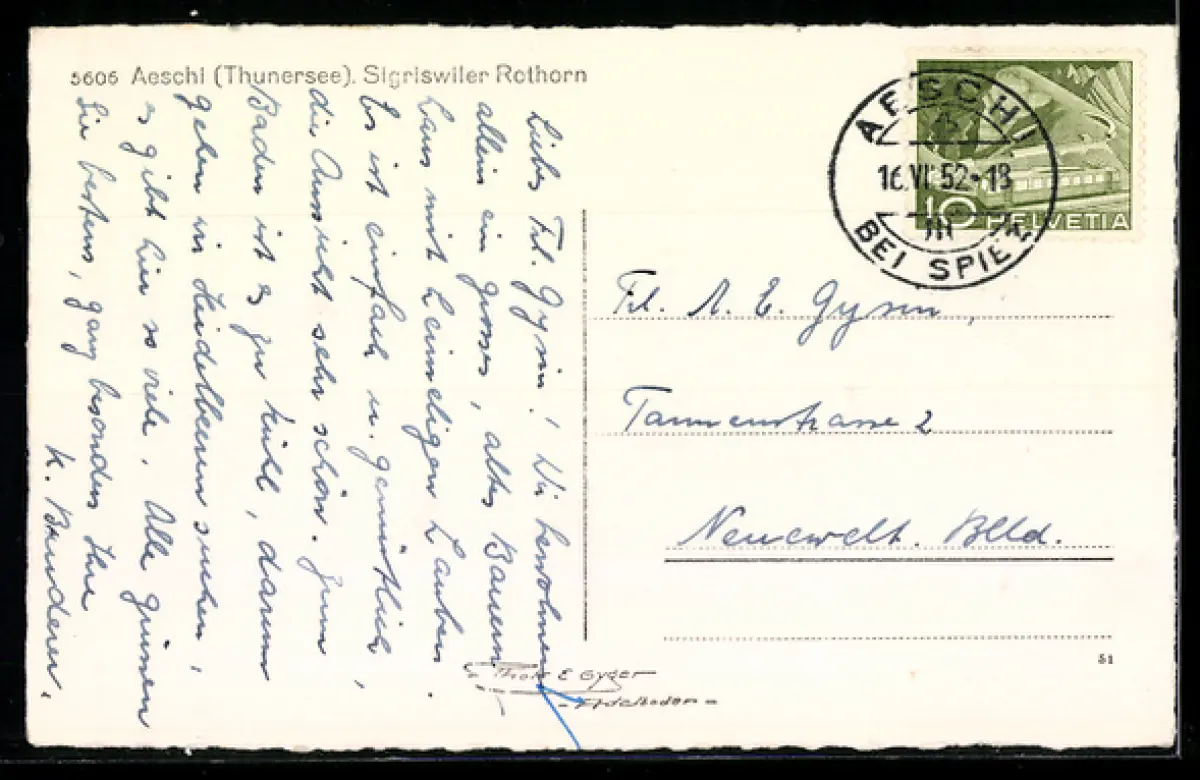 5605 Aeschi (Thunersee). Sigriswiler Rothorn
Liebes Frl. Gysin! Wir bewohnen
allein ein grosses, altes Bauern
haus mit heimeligen Lauben.
Es ist einfach u. gemütlich,
die Aussicht sehr schön. Zum
Baden ist es zu kühl, darum
gehen wir Heidelbeeren suchen,
es gibt hier so viele. Alle grüssen
Sie bestens, ganz besonders Ihre
K. Benderer.
Phot E Gyger
- Adelboden -
AESCHI
16.VII.52-18
III
BEI SPIEZ
10 HELVETIA
Frl. A. E. Gysin,
Tannenstrasse 2
Neuewelt. Blld.
51